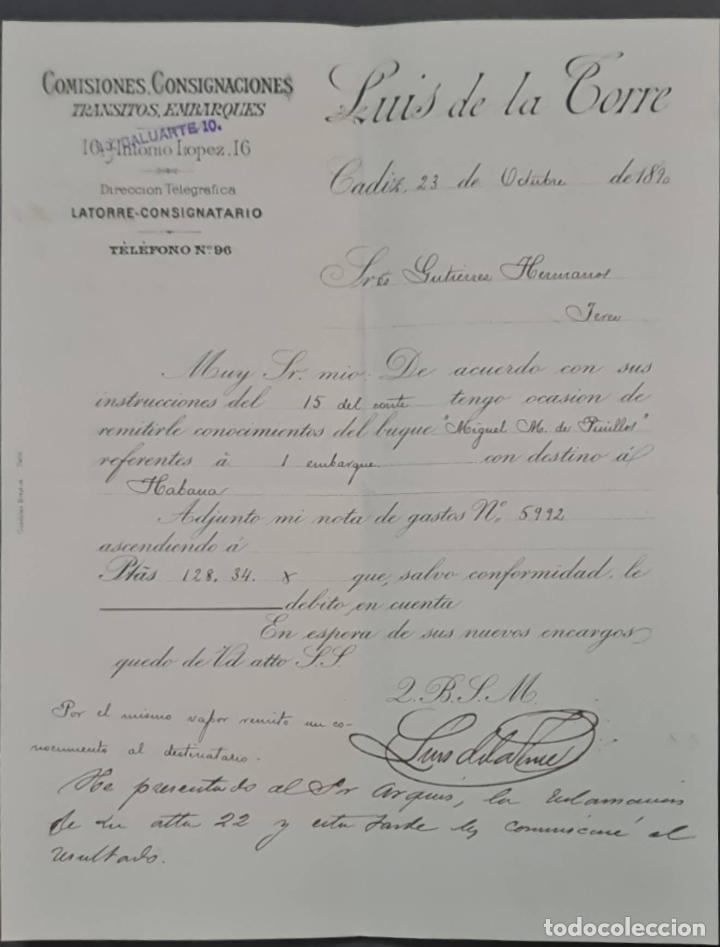 COMISIONES, CONSIGNACIONES
TRANSITOS, EMBARQUES
10, BALUARTE 10.
16, Antonio Lopez, 16
Direccion Telegrafica
LATORRE-CONSIGNATARIO
TELÉFONO Nº 96
Luis de la Torre
Cadiz, 23 de Octubre de 1890
Sres Gutierres Hermanos
Jerez
Muy Sr. mio: De acuerdo con sus
instrucciones del 15 del corrte tengo ocasion de
remitirle conocimientos del buque "Miguel M. de Pinillos"
referentes á 1 embarque con destino á
Habana
Adjunto mi nota de gastos Nº 5992
ascendiendo á
Ptas 128.34. x que, salvo conformidad, le
debito en cuenta
En espera de sus nuevos encargos
quedo de Vd atto S.S.
Q.B.S.M.
Luis de la Torre
Por el mismo vapor remito un co-
nocimiento al destinatario.
He presentado al Sr Arquis, la reclamacion
de su atta 22 y esta tarde les comunicaré el
resultado.
todocoleccion